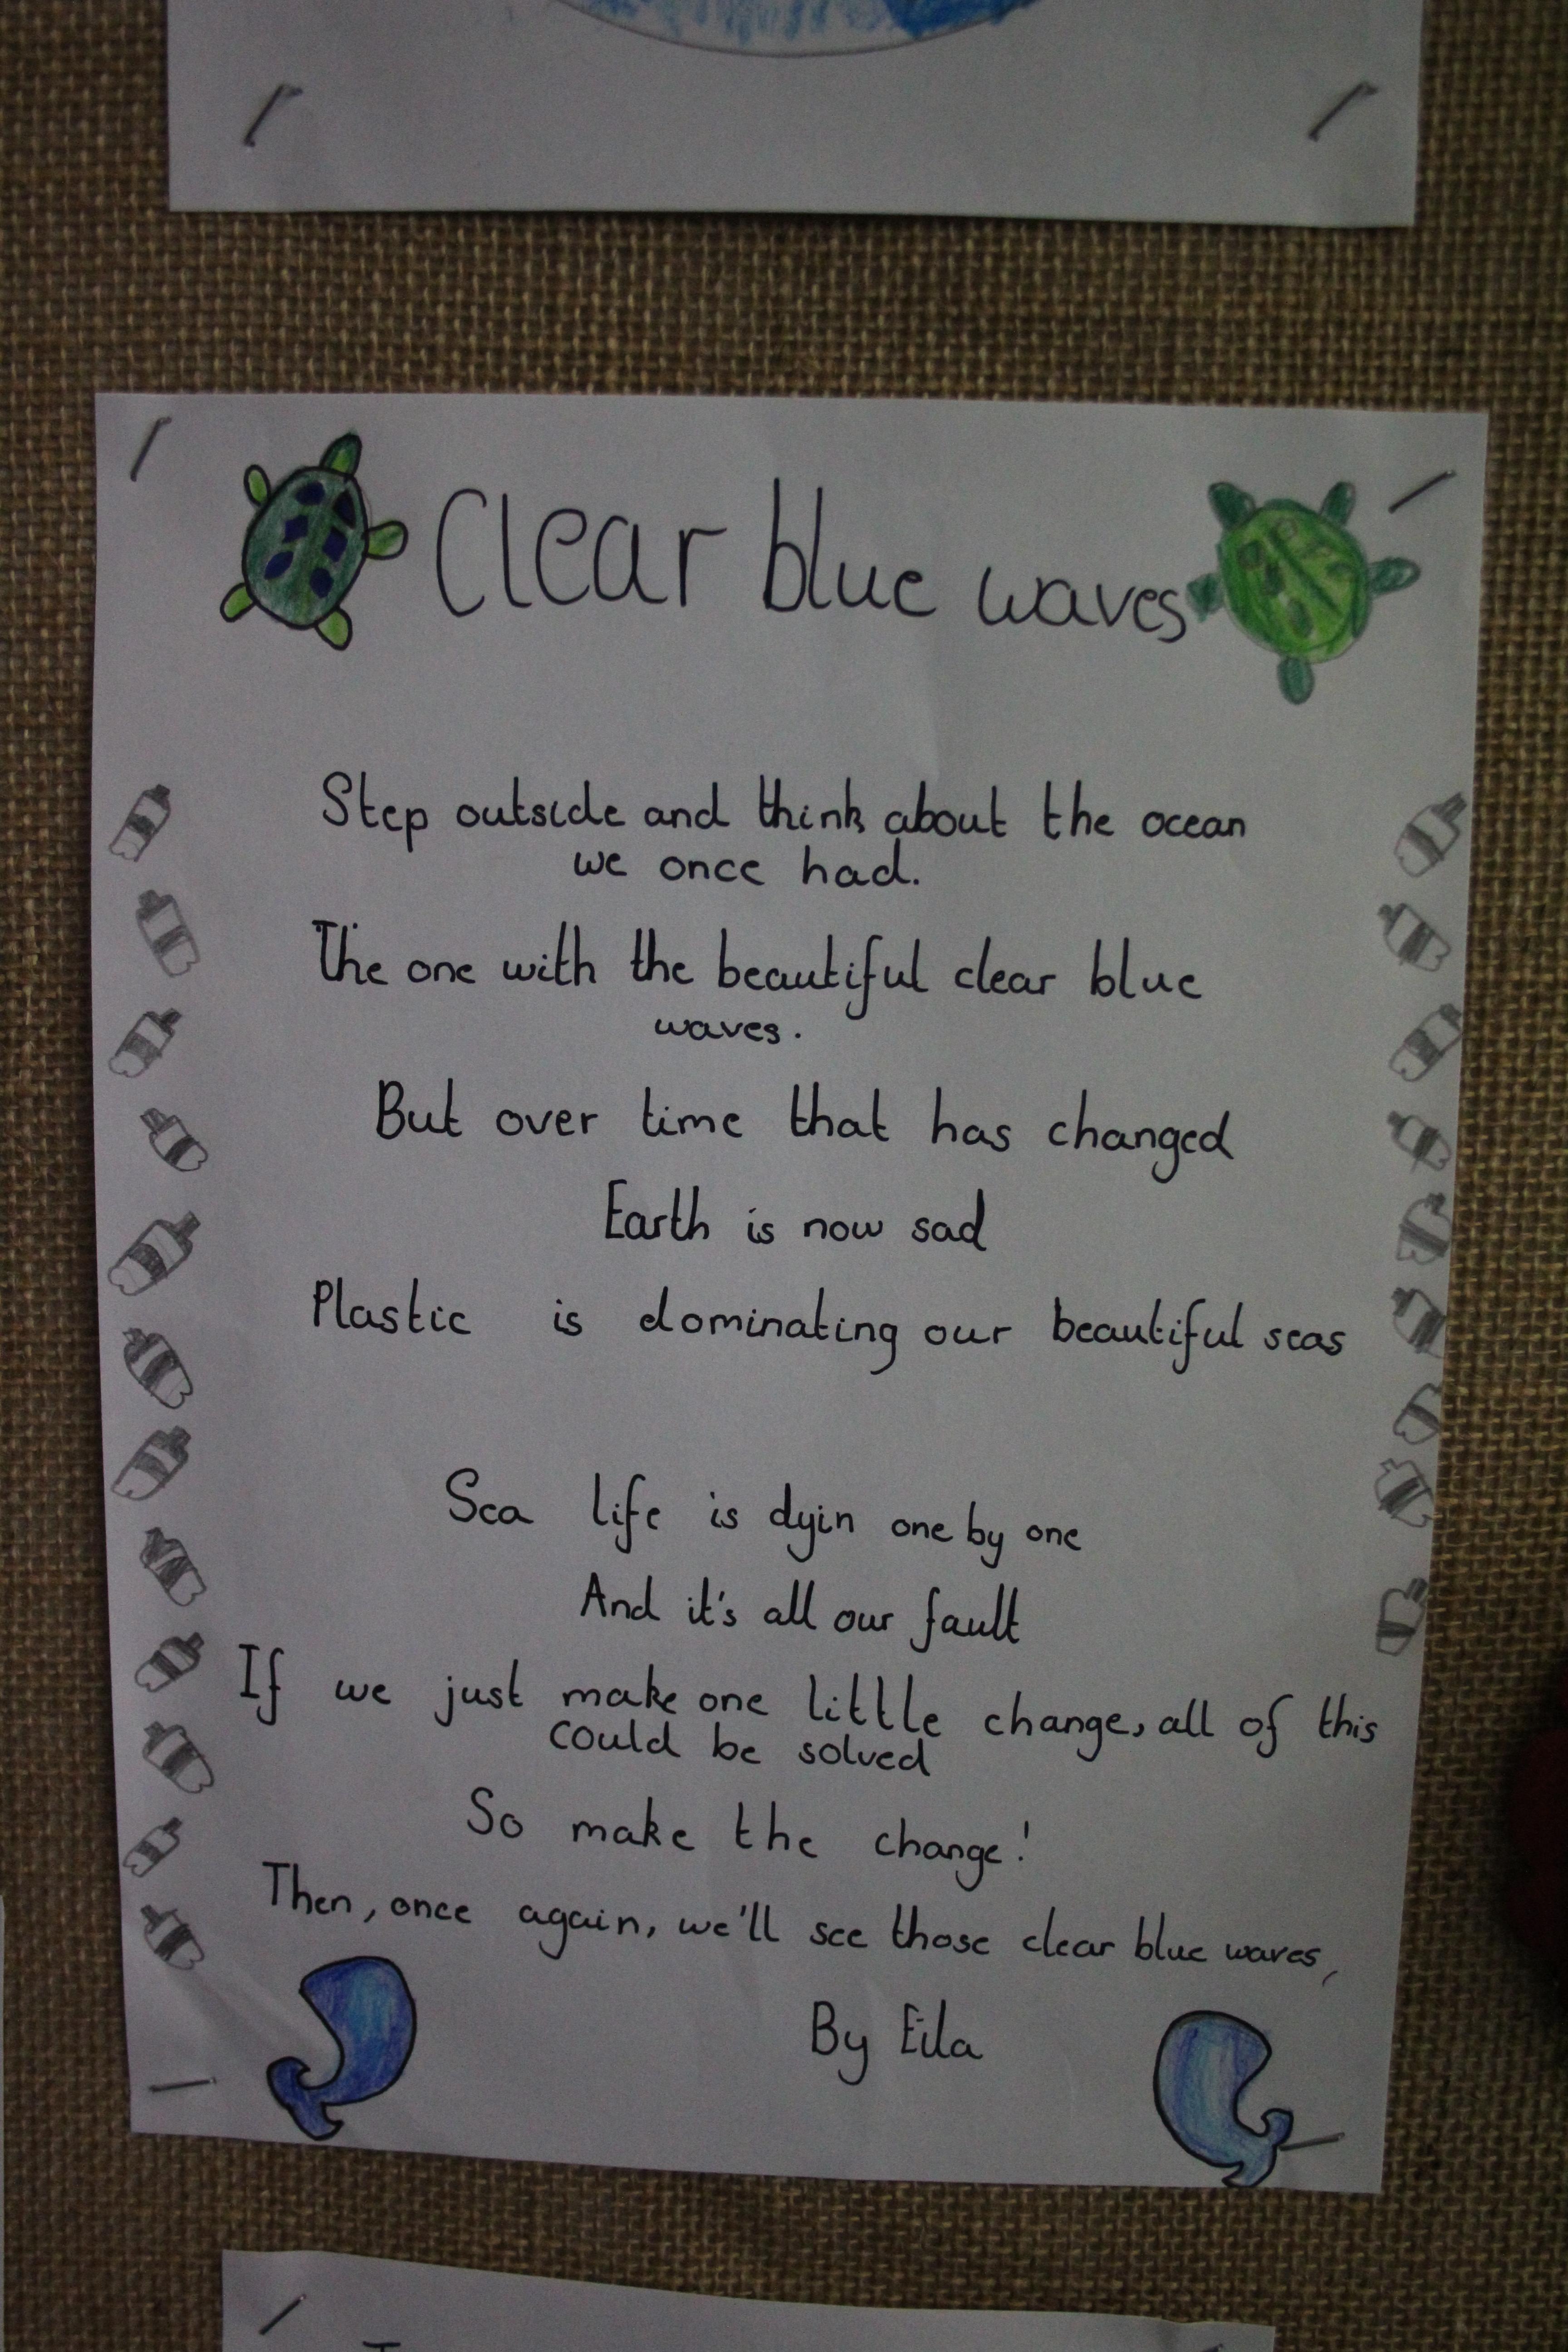 Clear blue waves
Step outside and think about the ocean
we once had.
The one with the beautiful clear blue
waves.
But over time that has changed
Earth is now sad
Plastic is dominating our beautiful seas
Sea life is dyin one by one
And it's all our fault
If we just make one little change, all of this
could be solved
So make the change!
Then, once again, we'll see those clear blue waves,
By Eila